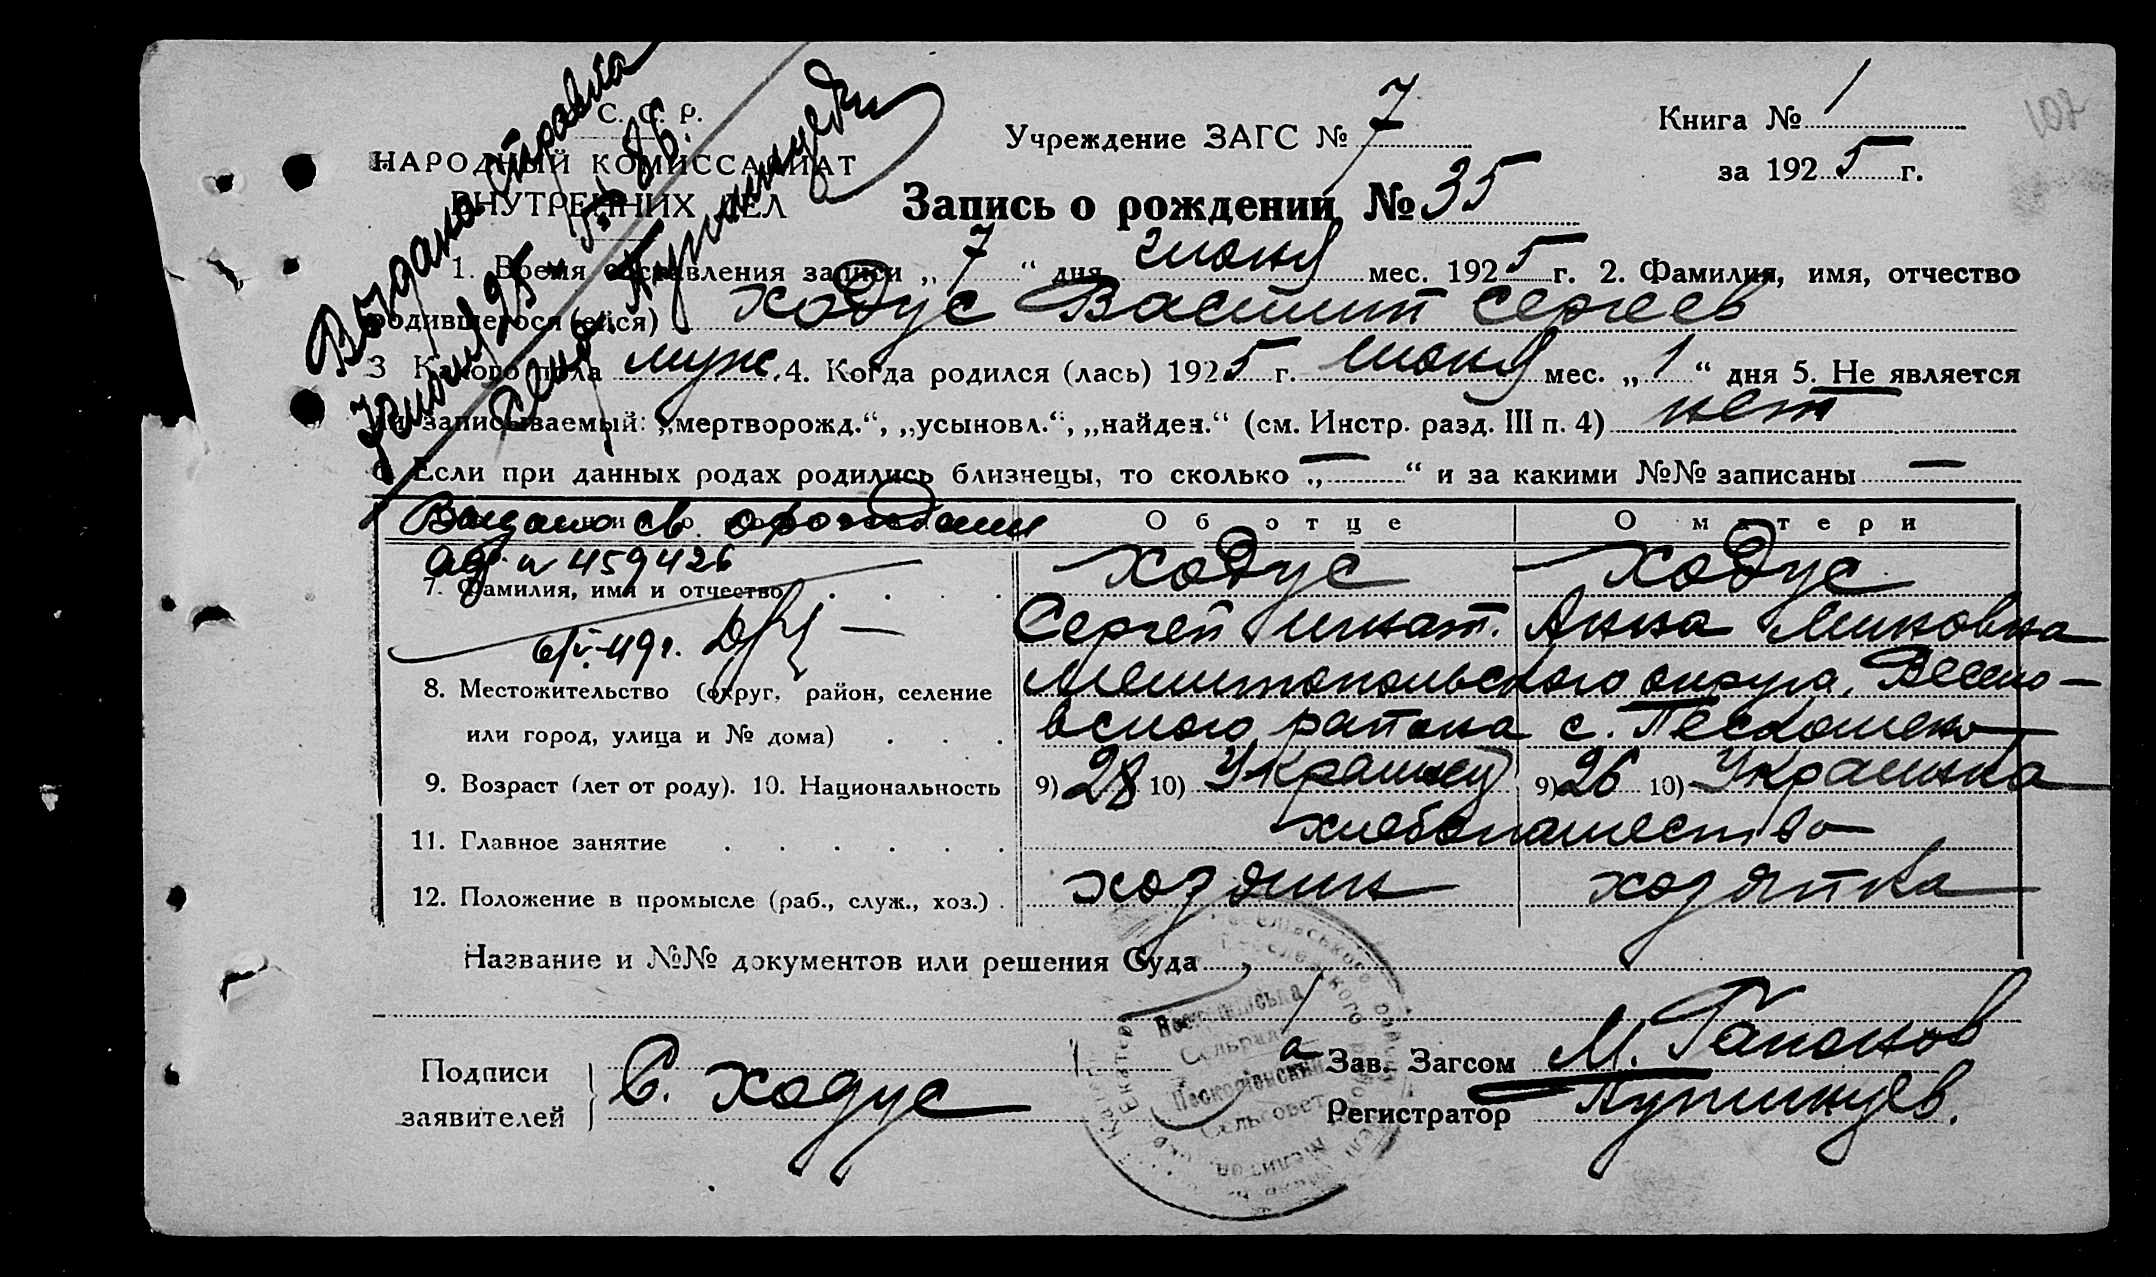 С. С. Р.
НАРОДНЫЙ КОМИССАРИАТ
ВНУТРЕННИХ ДЕЛ
Учреждение ЗАГС № 7
Книга № 1
за 1925 г.
107
Запись о рождении № 35
Выдана справка
1. Время составления записи „7“ дня июня мес. 1925 г. 2. Фамилия, имя, отчество
родившегося (ейся) Ходус Василий Сергеев
3 Какого пола муж. 4. Когда родился (лась) 1925 г. июня мес. „1“ дня 5. Не является
ли записываемый: „мертворожд.“, „усыновл.“, „найден.“ (см. Инстр. разд. III п. 4) нет
6 Если при данных родах родились близнецы, то сколько „—“ и за какими №№ записаны —
Выдано св. о рождении
№ 459426
Об отце
О матери
7. Фамилия, имя и отчество
Ходус
Ходус
Сергей Игнат.
Анна
6/V-49г.
8. Местожительство (округ, район, селение
или город, улица и № дома)
Мелитопольского округа, Весело-
вского района с.
9. Возраст (лет от роду). 10. Национальность
9) 28 10) Украинец
9) 26 10) Украинка
11. Главное занятие
хлебопашество
12. Положение в промысле (раб., служ., хоз.)
хозяин
хозяйка
Название и №№ документов или решения Суда
Подписи
заявителей
С. Ходус
Сельрада
Сельсовет
Зав. Загсом М. Гапонов
Регистратор